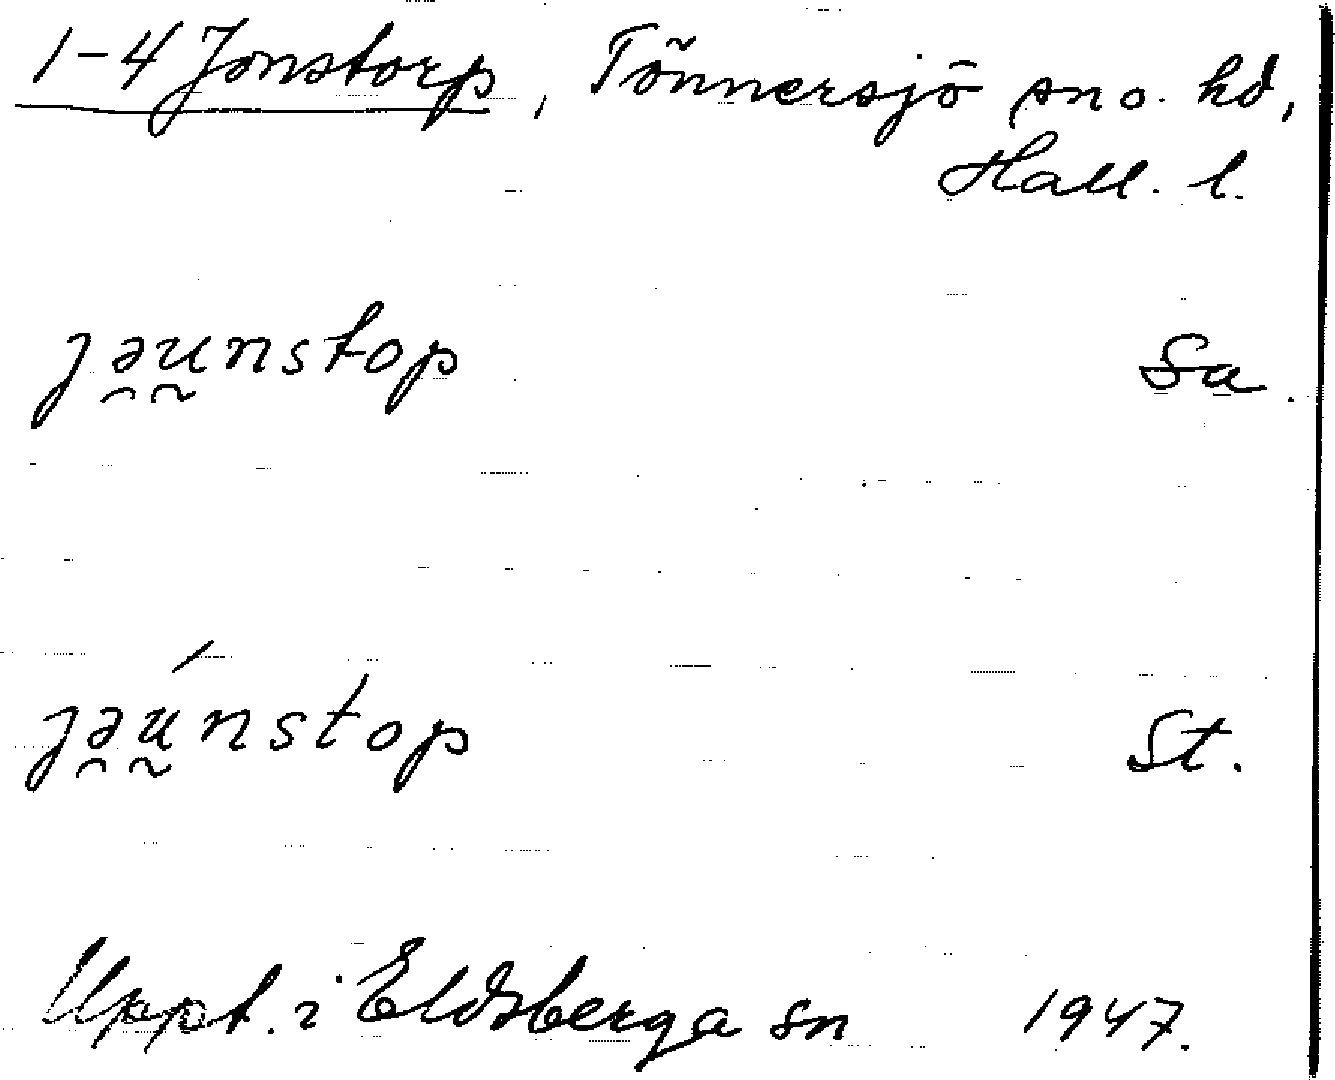 1-4 Jonstorp, Tönnersjö sn o. hd,
Hall. l.
jəu̯nstop Sa.
jəú̯nstop St.
Uppt. i Eldsberga sn 1947.